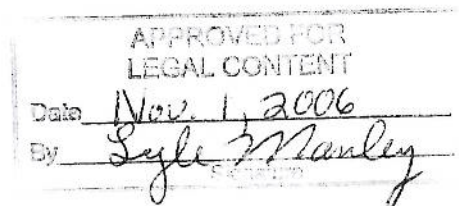 APPROVED FOR
LEGAL CONTENT
Date Nov. 1, 2006
By Lyle Manley
Signature